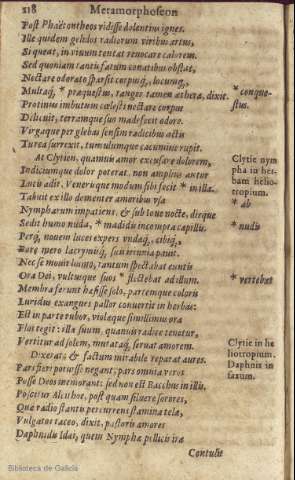 218 Metamorphoseon
Post Phaëtonteos vidisse dolentius ignes.
Ille quidem gelidos radiorum viribus artus,
Si queat, in vivum tentat revocare calorem.
Sed quoniam tantis fatum conatibus obstat,
Nectare odorato sparsit corpusq́, locumq́,
Multaq́, * præquestus, tanges tamen æthera, dixit.
* conque-
stus.
Protinus imbutum cœlesti nectare corpus
Dilicuit, terramque suo madefecit odore.
Virgaque per glebas sensim radicibus actis
Turea surrexit, tumulumque cacumine rupit.
At Clytien, quamvis amor excusare dolorem,
Indiciumque dolor poterat, non amplius auctor
Lucis adit, Venerisque modum sibi fecit * in illa.
Clytie nym
pha in her-
bam helio-
tropium.
* ab
Tabuit ex illo dementer amoribus usa
Nympharum impatiens, & sub Iove nocte, dieque
Sedit humo nuda, * madidis incompta capillis.
* nudis
Perq́, novem luces expers undaq́, cibiq́,
Rore mero lacrymisq́, suis ieiunia pavit.
Nec se movit humo, tantum spectabat euntis
Ora Dei, vultusque suos * flectebat ad illum.
* vertebat
Membra ferunt hæsisse solo, partemque coloris
Luridus exangues pallor convertit in herbas:
Est in parte rubor, violæque simillimus ora
Flos tegit: illa suum, quamvis radice tenetur,
Vertitur ad solem, mutataq́, servat amorem.
Clytie in he
liotropium.
Dixerat; & factum mirabile ceperat aures.
Daphnis in
saxum.
Pars fieri potuisse negant; pars omnia veros
Posse Deos memorant: sed non est Bacchus in illis.
Poscitur Alcithoe, postquam siluere sorores,
Quæ radio stantis percurrens stamina telæ,
Vulgatos taceo, dixit, pastoris amores
Daphnidis Idæi, quem Nympha pellicis ira
Contulit
Biblioteca de Galicia